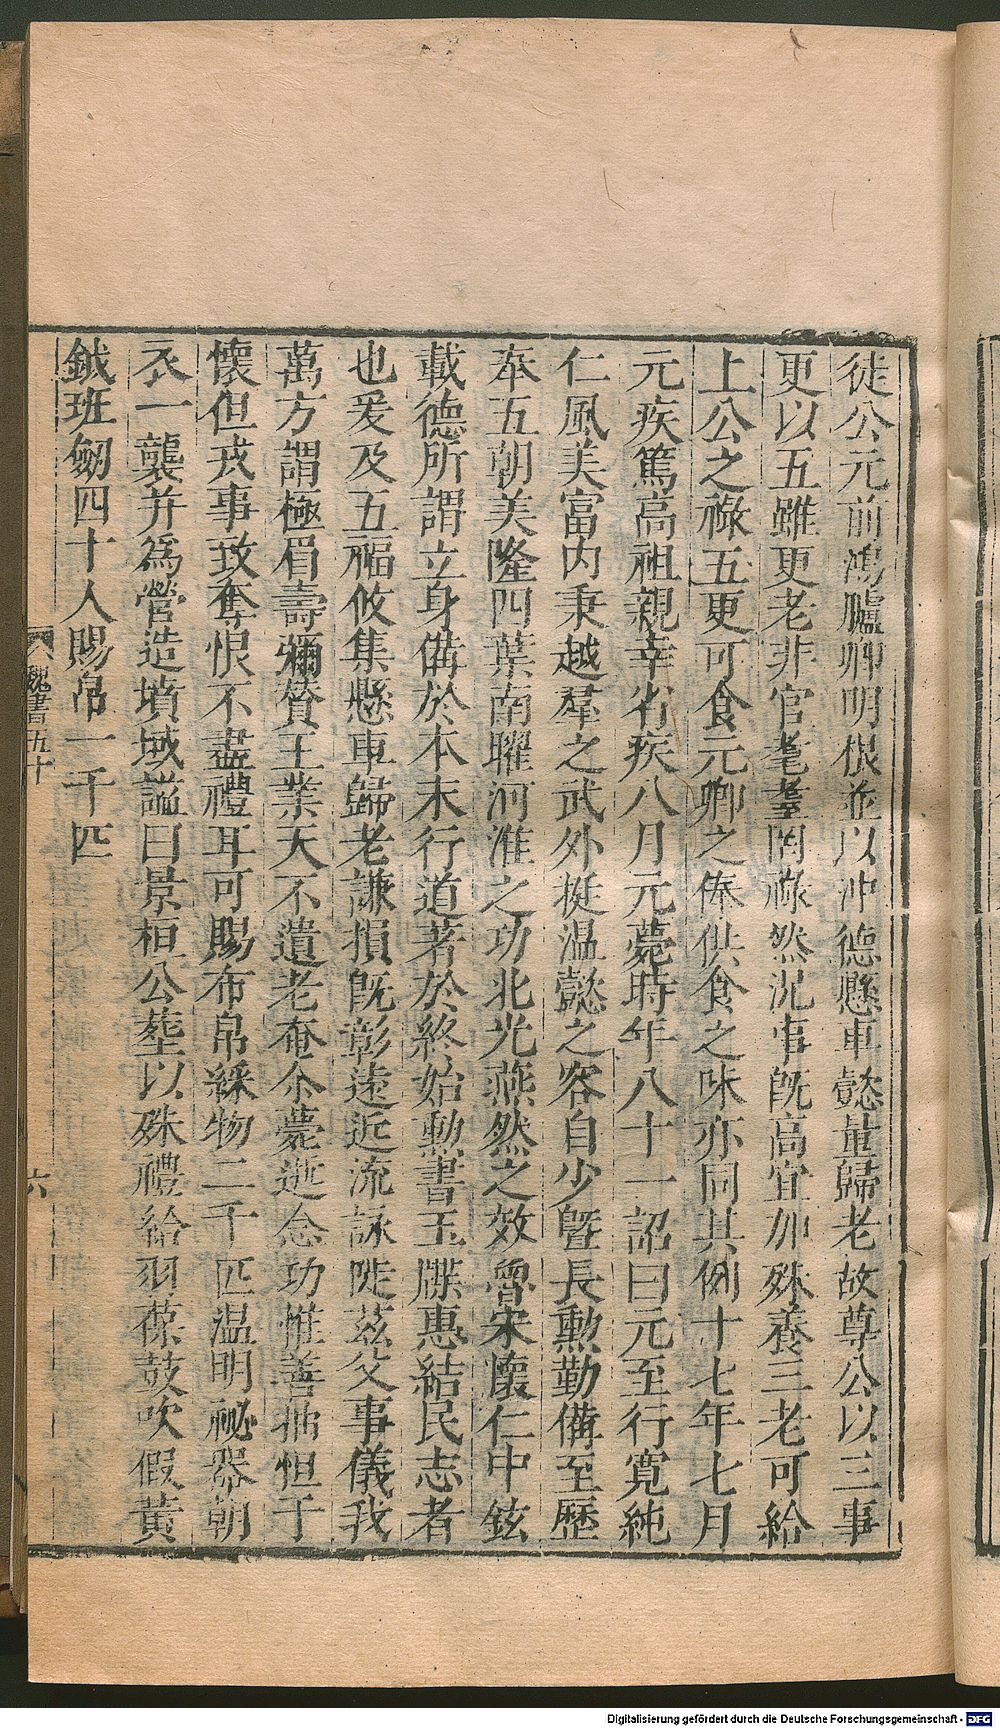 徒公元前鴻臚卿明根並以沖德懸車懿量歸老故尊公以三事
更以五雖更老非官耄耋罔祿然況事既高宜加殊養三老可給
上公之祿五更可食元卿之俸供食之味亦同其例十七年七月
元疾篤高祖親幸省疾八月元薨時年八十一詔曰元至行寬純
仁風美富内秉越羣之武外挺温懿之容自少暨長勲勤備至歷
奉五朝美隆四葉南曜河淮之功北光燕然之效魯宋懷仁中鉉
載德所謂立身備於本末行道著於終始勲書玉牒惠結民志者
也爰及五福攸集懸車歸老謙損既彰遠近流詠陟茲父事儀我
萬方謂極眉壽彌贊王業天不遺老奄尒薨逝念功惟善抽怛于
懷但戎事致奪恨不盡禮耳可賜布帛綵物二千匹温明祕器朝
衣一襲并爲營造墳域謚曰景桓公塟以殊禮給羽葆鼓吹假黃
鉞班劒四十人賜帛一千匹
魏書五十
六
Digitalisierung gefördert durch die Deutsche Forschungsgemeinschaft - DFG